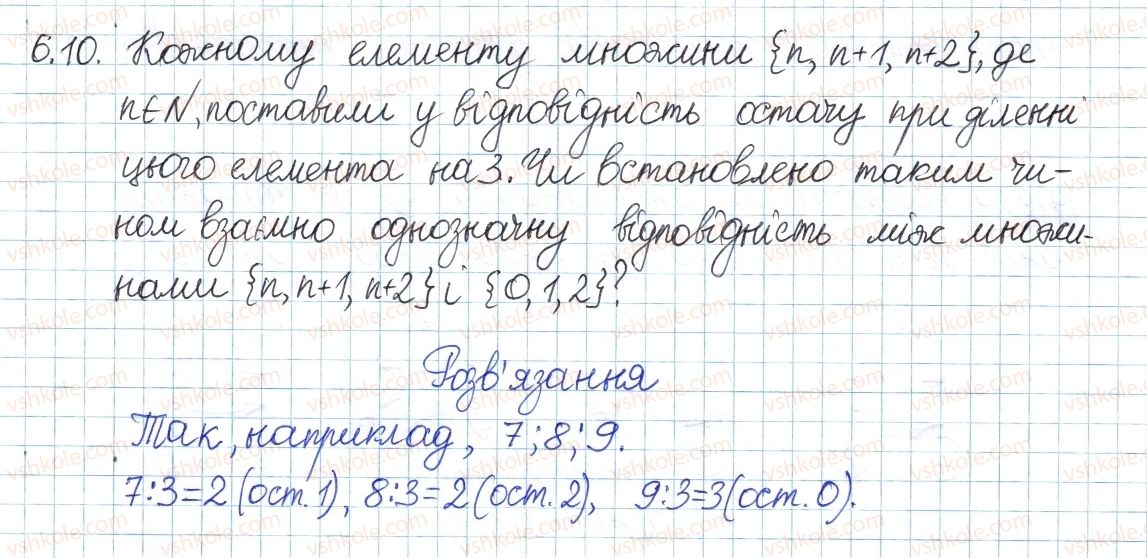 6.10. Кожному елементу множини {n, n+1, n+2}, де
n∈N, поставили у відповідність остачу при діленні
цього елемента на 3. Чи встановлено таким чи-
ном взаємно однозначну відповідність між множи-
нами {n, n+1, n+2} і {0, 1, 2}?
Розв'язання
Так, наприклад, 7; 8; 9.
7:3=2 (ост. 1), 8:3=2 (ост. 2), 9:3=3 (ост. 0).